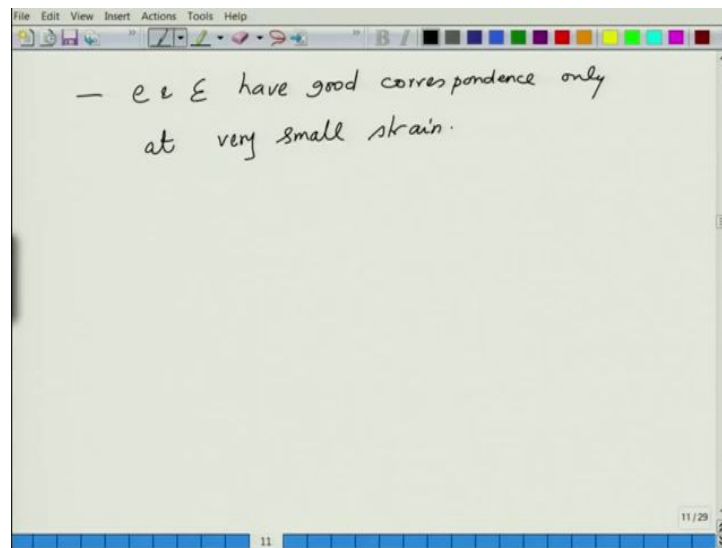 File Edit View Insert Actions Tools Help
— e & ε have good correspondence only
at very small strain.
11/29
11